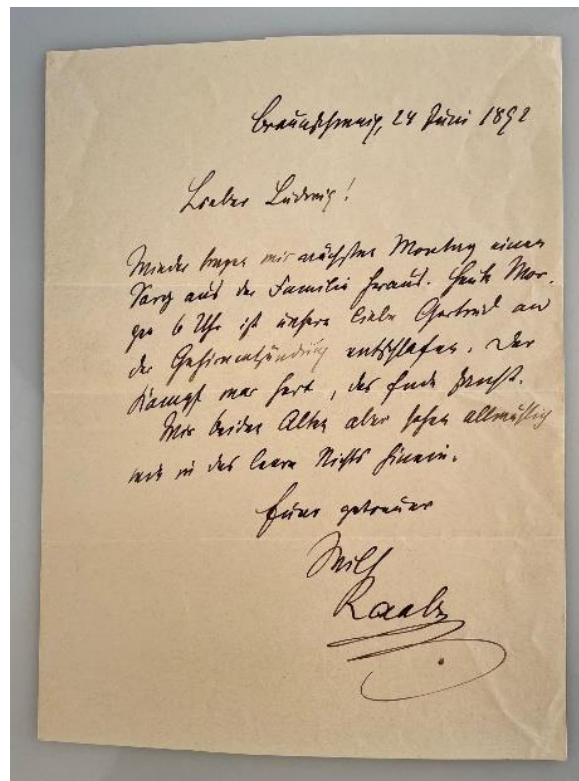 Braunschweig, 24 Juni 1892
Lieber Ludwig!
Wieder tragen wir nächsten Montag einen
Sarg aus der Familie heraus. Heute Mor-
gen 6 Uhr ist unsere liebe Gertrud an
der Gehirnentzündung entschlafen. Der
Kampf war hart, das Ende sanft.
Wir beiden Alten aber sehen allmählich
in das leere Nichts hinein.
Euer getreuer
Wilh
Raabe